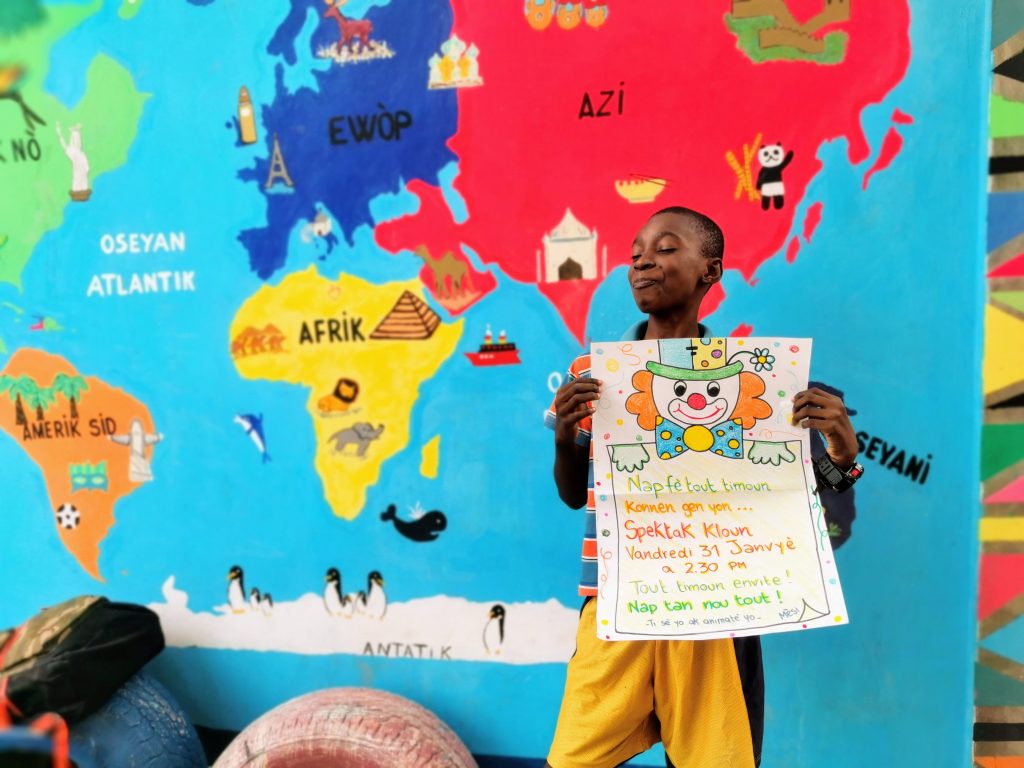 K NÒ
EWÒP
AZI
OSEYAN
ATLANTIK
AFRIK
AMERIK SID
O
SEYANI
ANTATIK
Nap fè tout timoun
Konnen gen yon...
Spektak Kloun
Vandredi 31 Janvyè
a 2.30 PM
Tout timoun envite!
Nap tan nou tout!
-Ti sé yo ak animatè yo-
MÈSI